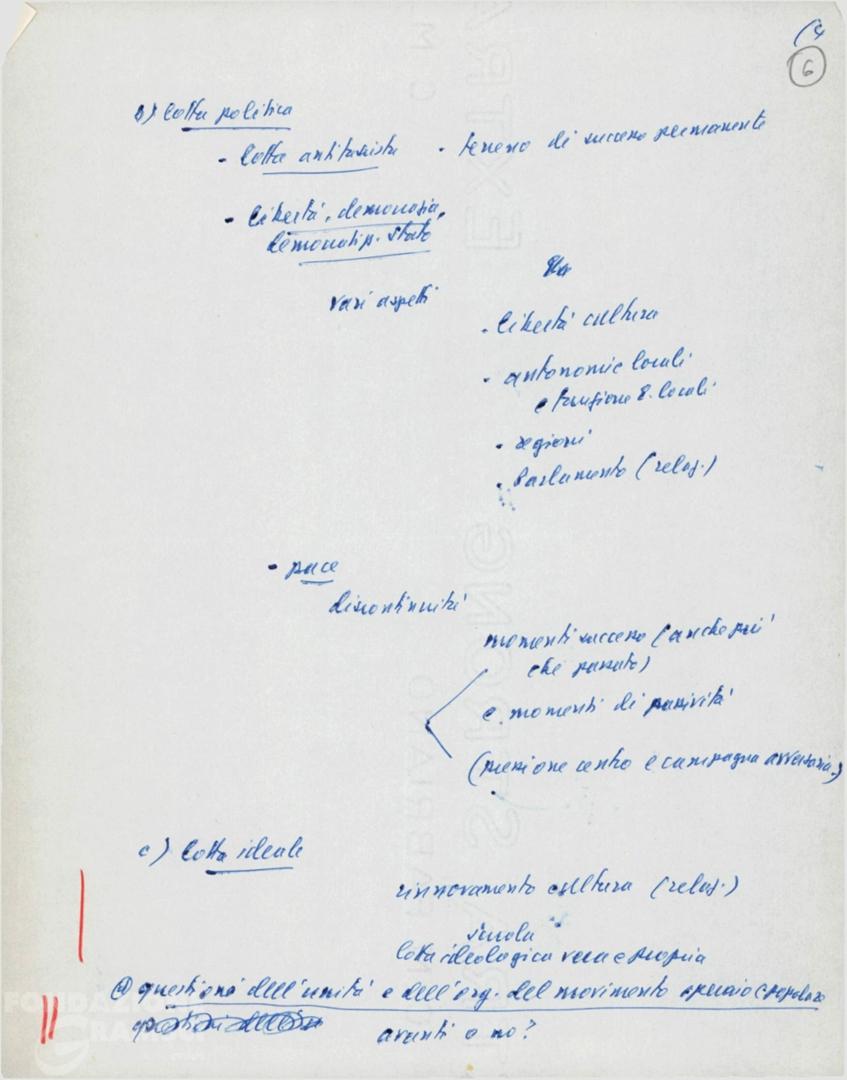 (4
6
b) Lotta politica
- Lotta antifascista - terreno di successo permanente
- libertà, democrazia,
democratiz. Stato
vari aspetti
- libertà cultura
- autonomie locali
e funzione E. locali
- regioni
- Parlamento (relaz.)
- pace
discontinuità
momenti successo (anche più
che passato)
e momenti di passività
(pressione centro e campagna avversaria)
c) Lotta ideale
rinnovamento cultura (relaz.)
scuola
lotta ideologica vera e propria
questione dell'unità e dell'org. del movimento operaio e popolare
avanti o no?
FONDAZIONE
GRAMSCI